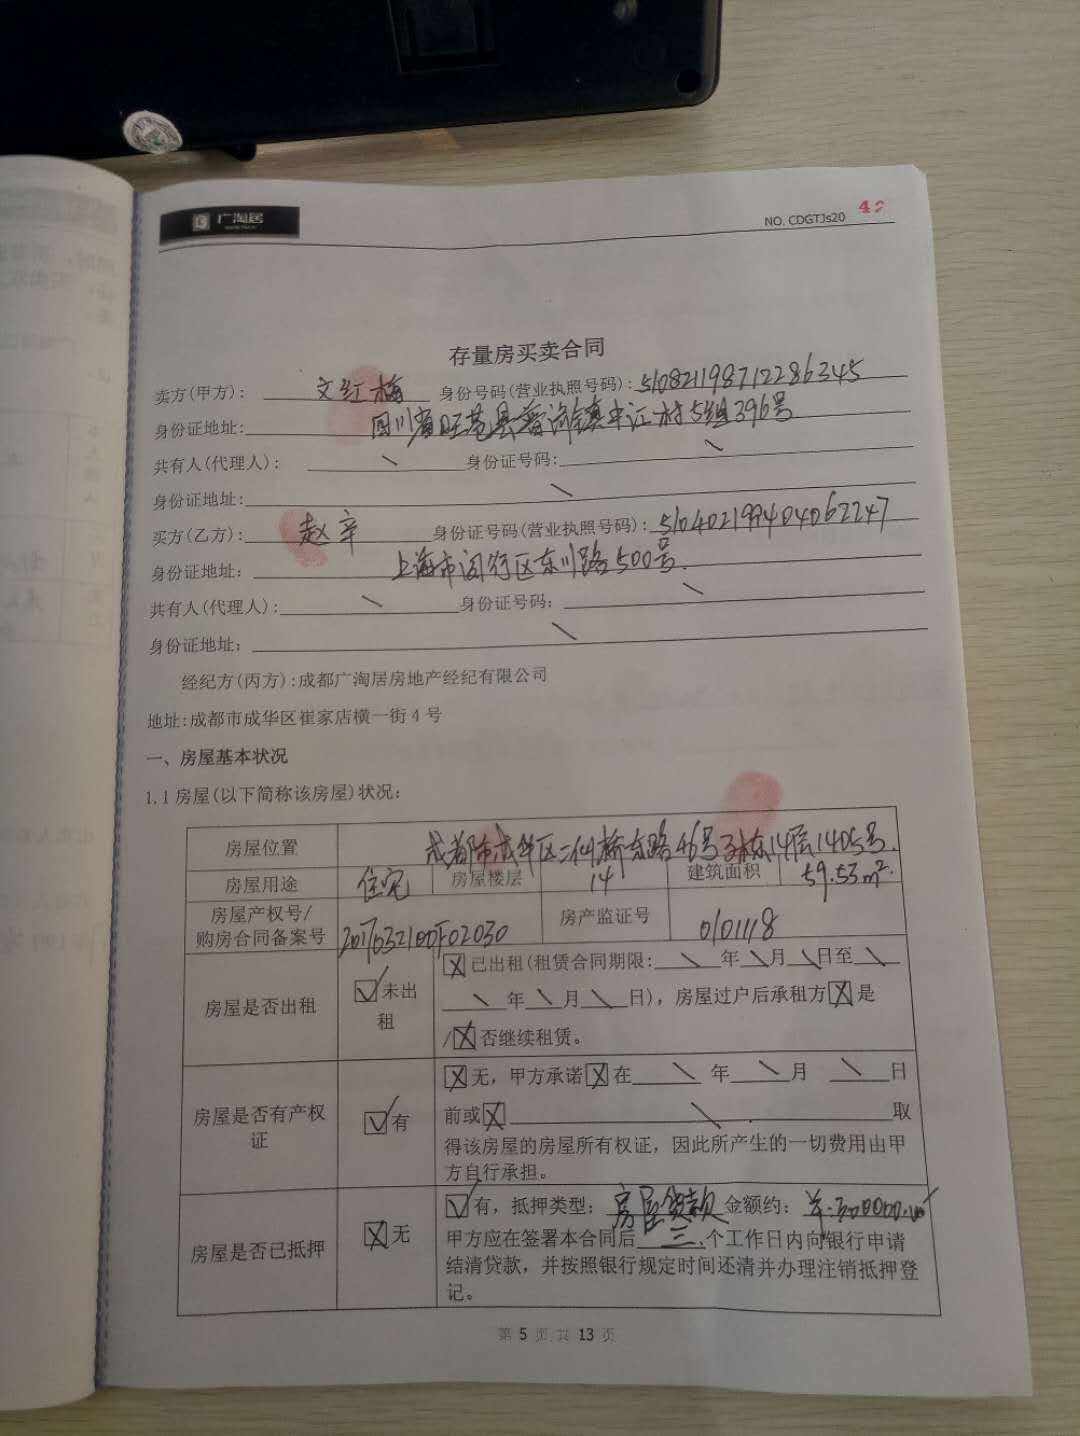 广淘居
NO. CDGTJs20 42
存量房买卖合同
卖方(甲方): 文红梅 身份号码(营业执照号码): 510821198712286345
身份证地址: 四川省旺苍县普济镇中江村5组396号
共有人(代理人): \ 身份证号码: \
身份证地址: \
买方(乙方): 赵辛 身份证号码(营业执照号码): 510402199404062247
身份证地址: 上海市闵行区东川路500号.
共有人(代理人): \ 身份证号码: \
身份证地址: \
经纪方(丙方):成都广淘居房地产经纪有限公司
地址:成都市成华区崔家店横一街4号
一、房屋基本状况
1.1房屋(以下简称该房屋)状况:
房屋位置 成都市成华区二仙桥东路46号3栋14层1405号.
房屋用途 住宅 房屋楼层 14 建筑面积 59.53m².
房屋产权号/
购房合同备案号 房产监证号 0101118
房屋是否出租 ☑未出租
☒已出租(租赁合同期限: \ 年 \ 月 \ 日至 \
\ 年 \ 月 \ 日), 房屋过户后承租方☒是
/☒否继续租赁。
房屋是否有产权证 ☑有
☒无, 甲方承诺☒在 \ 年 \ 月 \ 日
前或☒ \ 取
得该房屋的房屋所有权证, 因此所产生的一切费用由甲
方自行承担。
房屋是否已抵押 ☒无
☑有, 抵押类型: 房屋贷款 金额约:
甲方应在签署本合同后 三 个工作日内向银行申请
结清贷款, 并按照银行规定时间还清并办理注销抵押登
记。
第 5 页 共 13 页